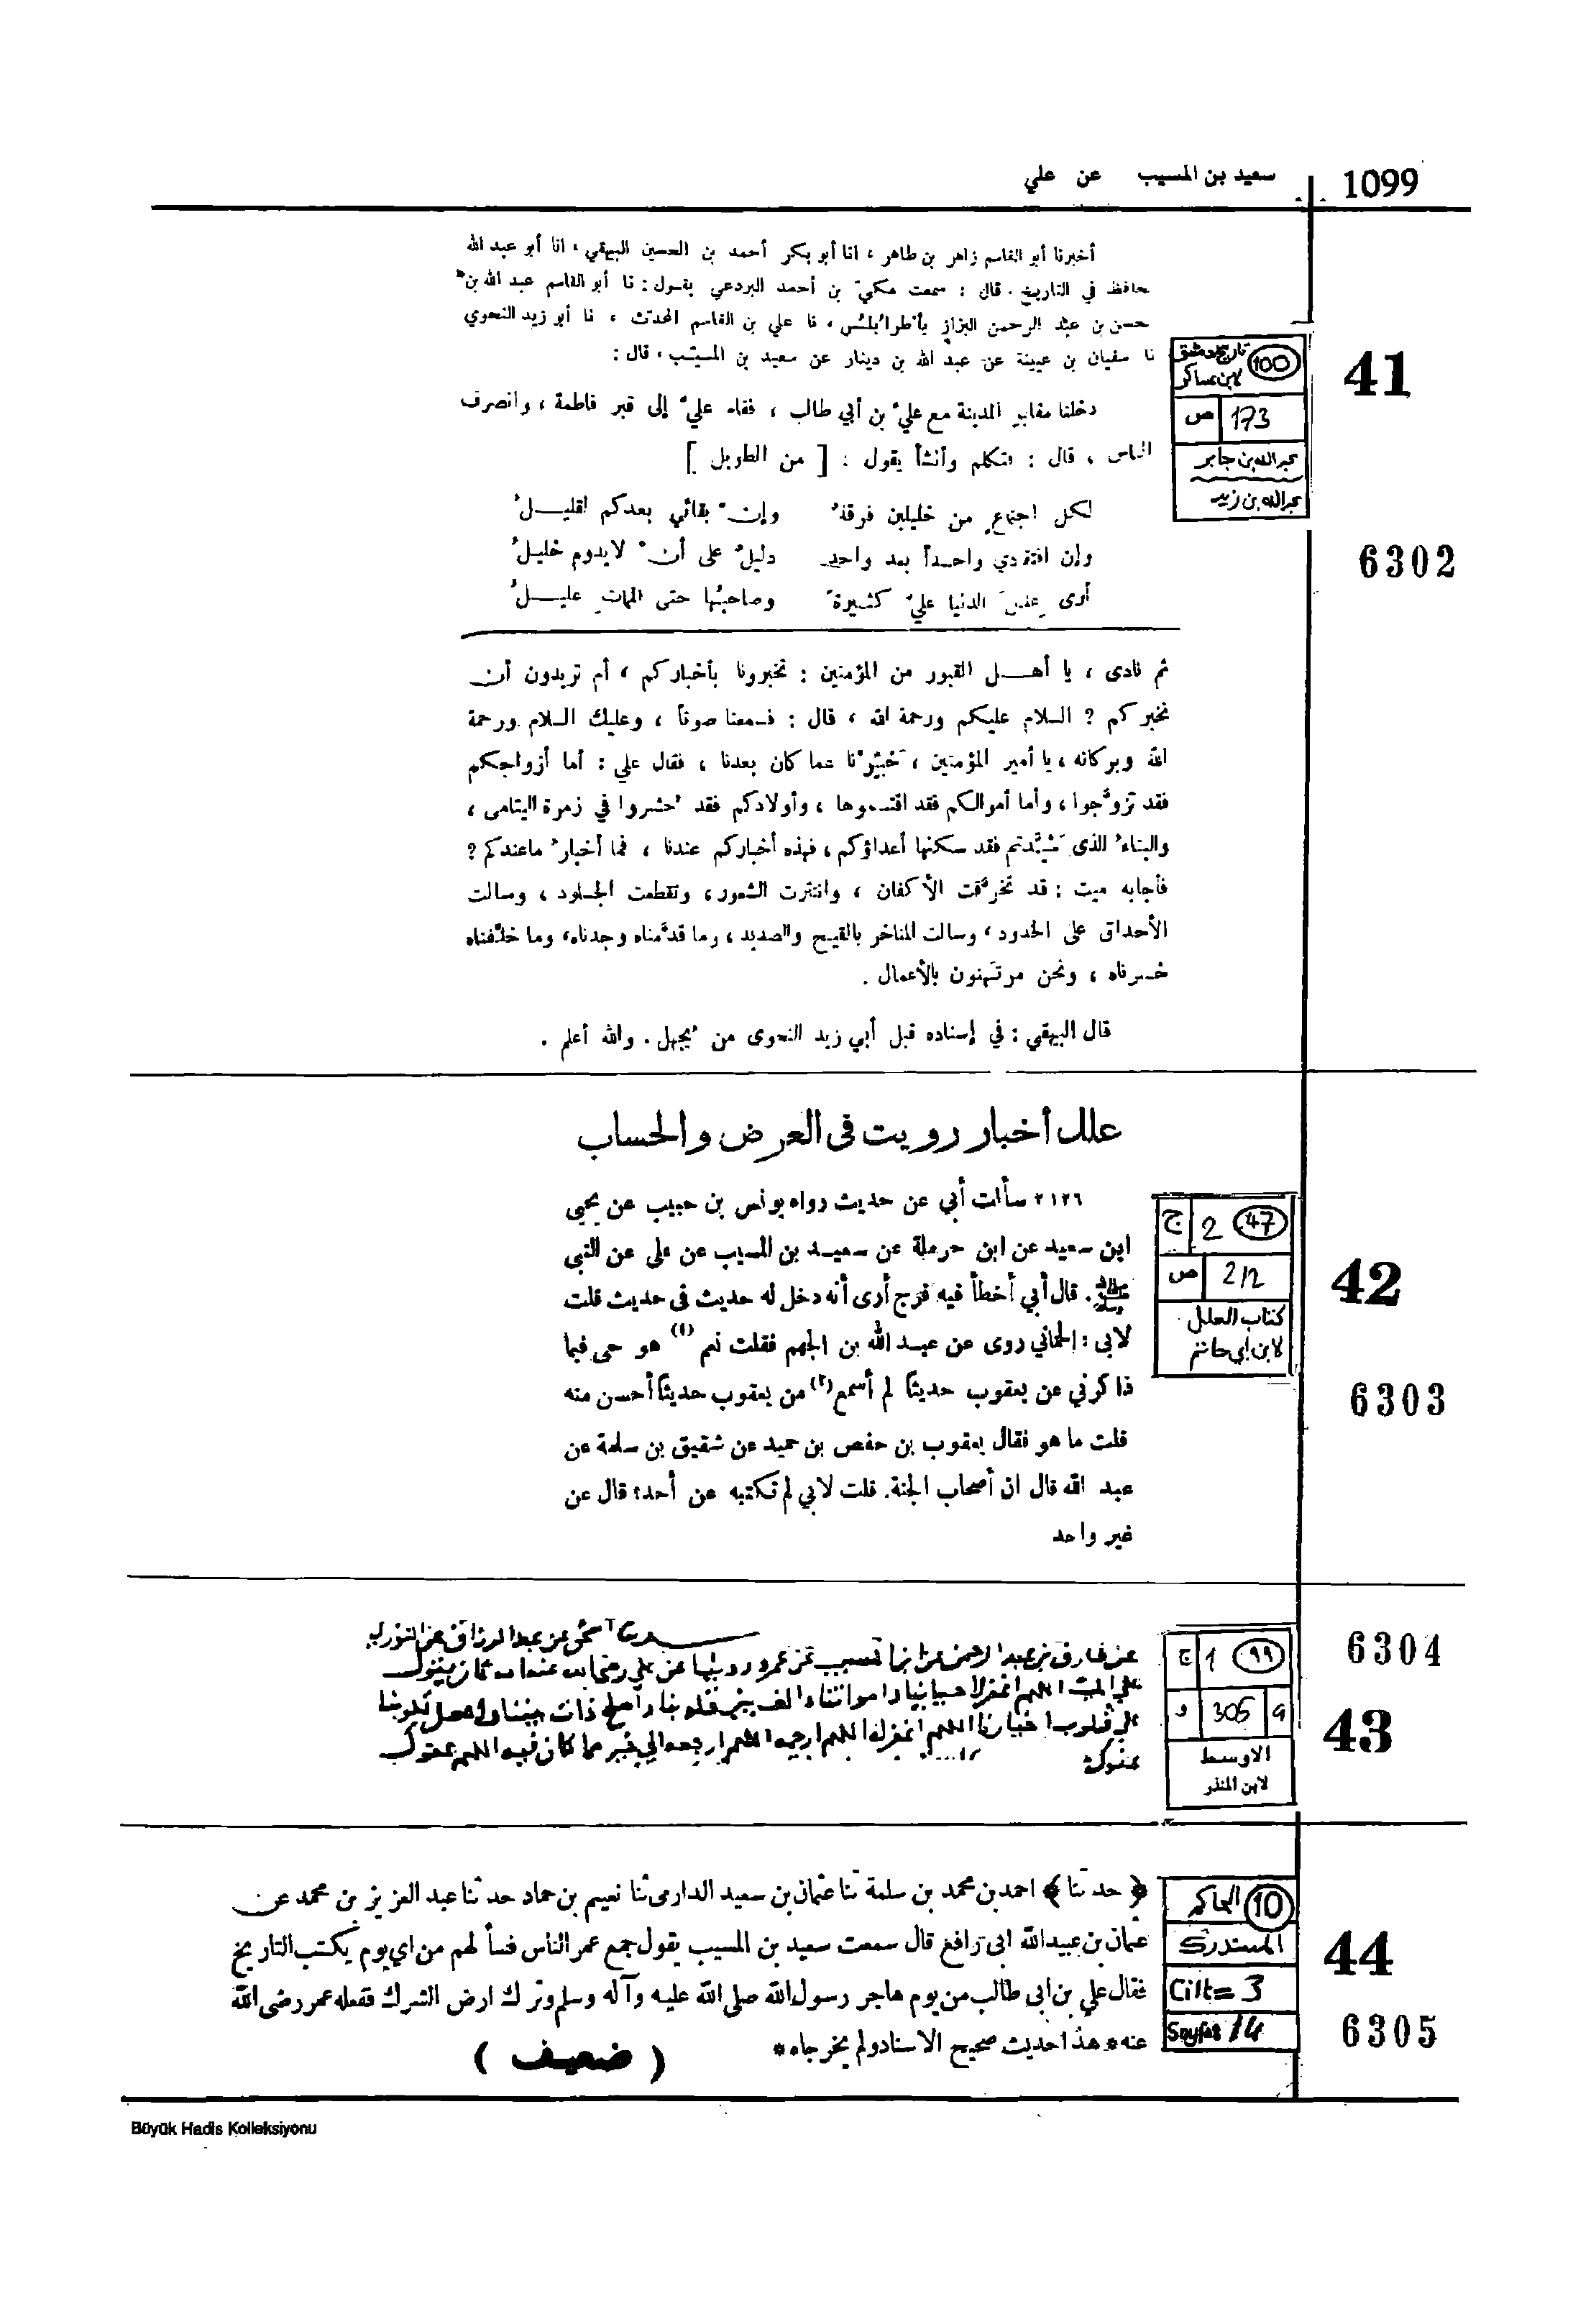 1099 سعيد بن المسيب عن علي
أخبرنا أبو القاسم زاهر بن طاهر ، انا أبو بكر أحمد بن الحسين البيهقي ، انا أبو عبد الله
حافظ في التاريخ . قال : سمعت مكي بن أحمد البردعي يقول : نا أبو القاسم عبد الله بن
حسن بن عبد الرحمن البزاز بأطرابلس ، نا علي بن القاسم المحدث ، نا أبو زيد النحوي
نا سفيان بن عيينة عن عبد الله بن دينار عن سعيد بن المسيّب ، قال :
دخلنا مقابر المدينة مع علي بن أبي طالب ، فقام علي إلى قبر فاطمة ، وانصرف
الناس ، قال : فتكلم وأنشأ يقول : [ من الطويل ]
لكل اجتماعٍ من خليلين فرقةٌ وإنّ بقائي بعدكم لقليــلُ
وإن افتقادي واحداً بعد واحدٍ دليلٌ على أنْ لايدوم خليلُ
أرى علل الدنيا عليّ كثيرةً وصاحبُها حتى المماتِ عليــلُ
تاريخ دمشق 100
لابن عساكر
ص 173
عبد الله بن جابر
عبد الله بن زيد
41
6302
ثم نادى ، يا أهــل القبور من المؤمنين : تخبرونا بأخباركم ، أم تريدون أن
نخبركم ؟ السلام عليكم ورحمة الله ، قال : فسمعنا صوتاً ، وعليك السلام ورحمة
الله وبركاته ، يا أمير المؤمنين ، خَبِّرْنا عما كان بعدنا ، فقال علي : أما أزواجكم
فقد تزوّجوا ، وأما أموالكم فقد اقتسموها ، وأولادكم فقد حُشروا في زمرة اليتامى ،
والبناءُ الذى شيّدتم فقد سكنها أعداؤكم ، فهذه أخباركم عندنا ، فما أخبارُ ماعندكم ؟
فأجابه ميت : قد تخرّقت الأكفان ، وانتثرت الشعور ، وتقطعت الجلود ، وسالت
الأحداق على الخدود ، وسالت المناخر بالقيح والصديد ، وما قدّمناه وجدناه ، وما خلّفناه
خسرناه ، ونحن مرتهنون بالأعمال .
قال البيهقي : في إسناده قبل أبي زيد النحوى من يُجهل . والله أعلم .
علل أخبار رويت فى العرض والحساب
٢١٢٦ سألت أبي عن حديث رواه يونس بن حبيب عن يحيى
ابن سعيد عن ابن حرملة عن سعيــد بن المسيب عن على عن النبي
ﷺ . قال أبي أخطأ فيه فرج أرى أنه دخل له حديث فى حديث قلت
لابى : الحماني روى عن عبد الله بن الجهم فقلت نعم (١) هو حى فيما
ذاكرني عن يعقوب حديثًا لم أسمع (٢) من يعقوب حديثًا أحسن منه
قلت ما هو فقال يعقوب بن حفص بن حميد عن شقيق بن سلمة عن
عبد الله قال ان أصحاب الجنة. قلت لابي لم تكتبه عن أحد؟ قال عن
غير واحد
ج 2 47
ص 212
كتاب العلل
لابن أبي حاتم
42
6303
عن عبد الرزاق عن الثوري
عن طارق بن عبد الرحمن عن
على الميت اللهم اغفر لاحيائنا وامواتنا والف بين قلوبنا واصلح ذات بيننا واجعل قلوبنا
على قلوب اخيارنا اللهم اغفر له اللهم ارحمه اللهم ارجعه الى خير مما كان فيه اللهم عفوك
عفوك
ج 1 ٩٩
و 305 a
الاوسط
لابن المنذر
6304
43
﴿ حدثنا ﴾ احمد بن محمد بن سلمة ثنا عثمان بن سعيد الدارمى ثنا نعيم بن حماد حدثنا عبد العزيز بن محمد عن
عثمان بن عبيدالله ابى رافع قال سمعت سعيد بن المسيب يقول جمع عمر الناس فسألهم من اي يوم يكتب التاريخ
فقال علي بن ابى طالب من يوم هاجر رسول الله صلى الله عليه وآله وسلم وترك ارض الشرك ففعله عمر رضى الله
عنه * هذا حديث صحيح الاسناد ولم يخرجاه *
( ضعيف )
الحاكم 10
المستدرك
Cilt= 3
Sayfa 14
44
6305
Büyük Hadis Kolleksiyonu